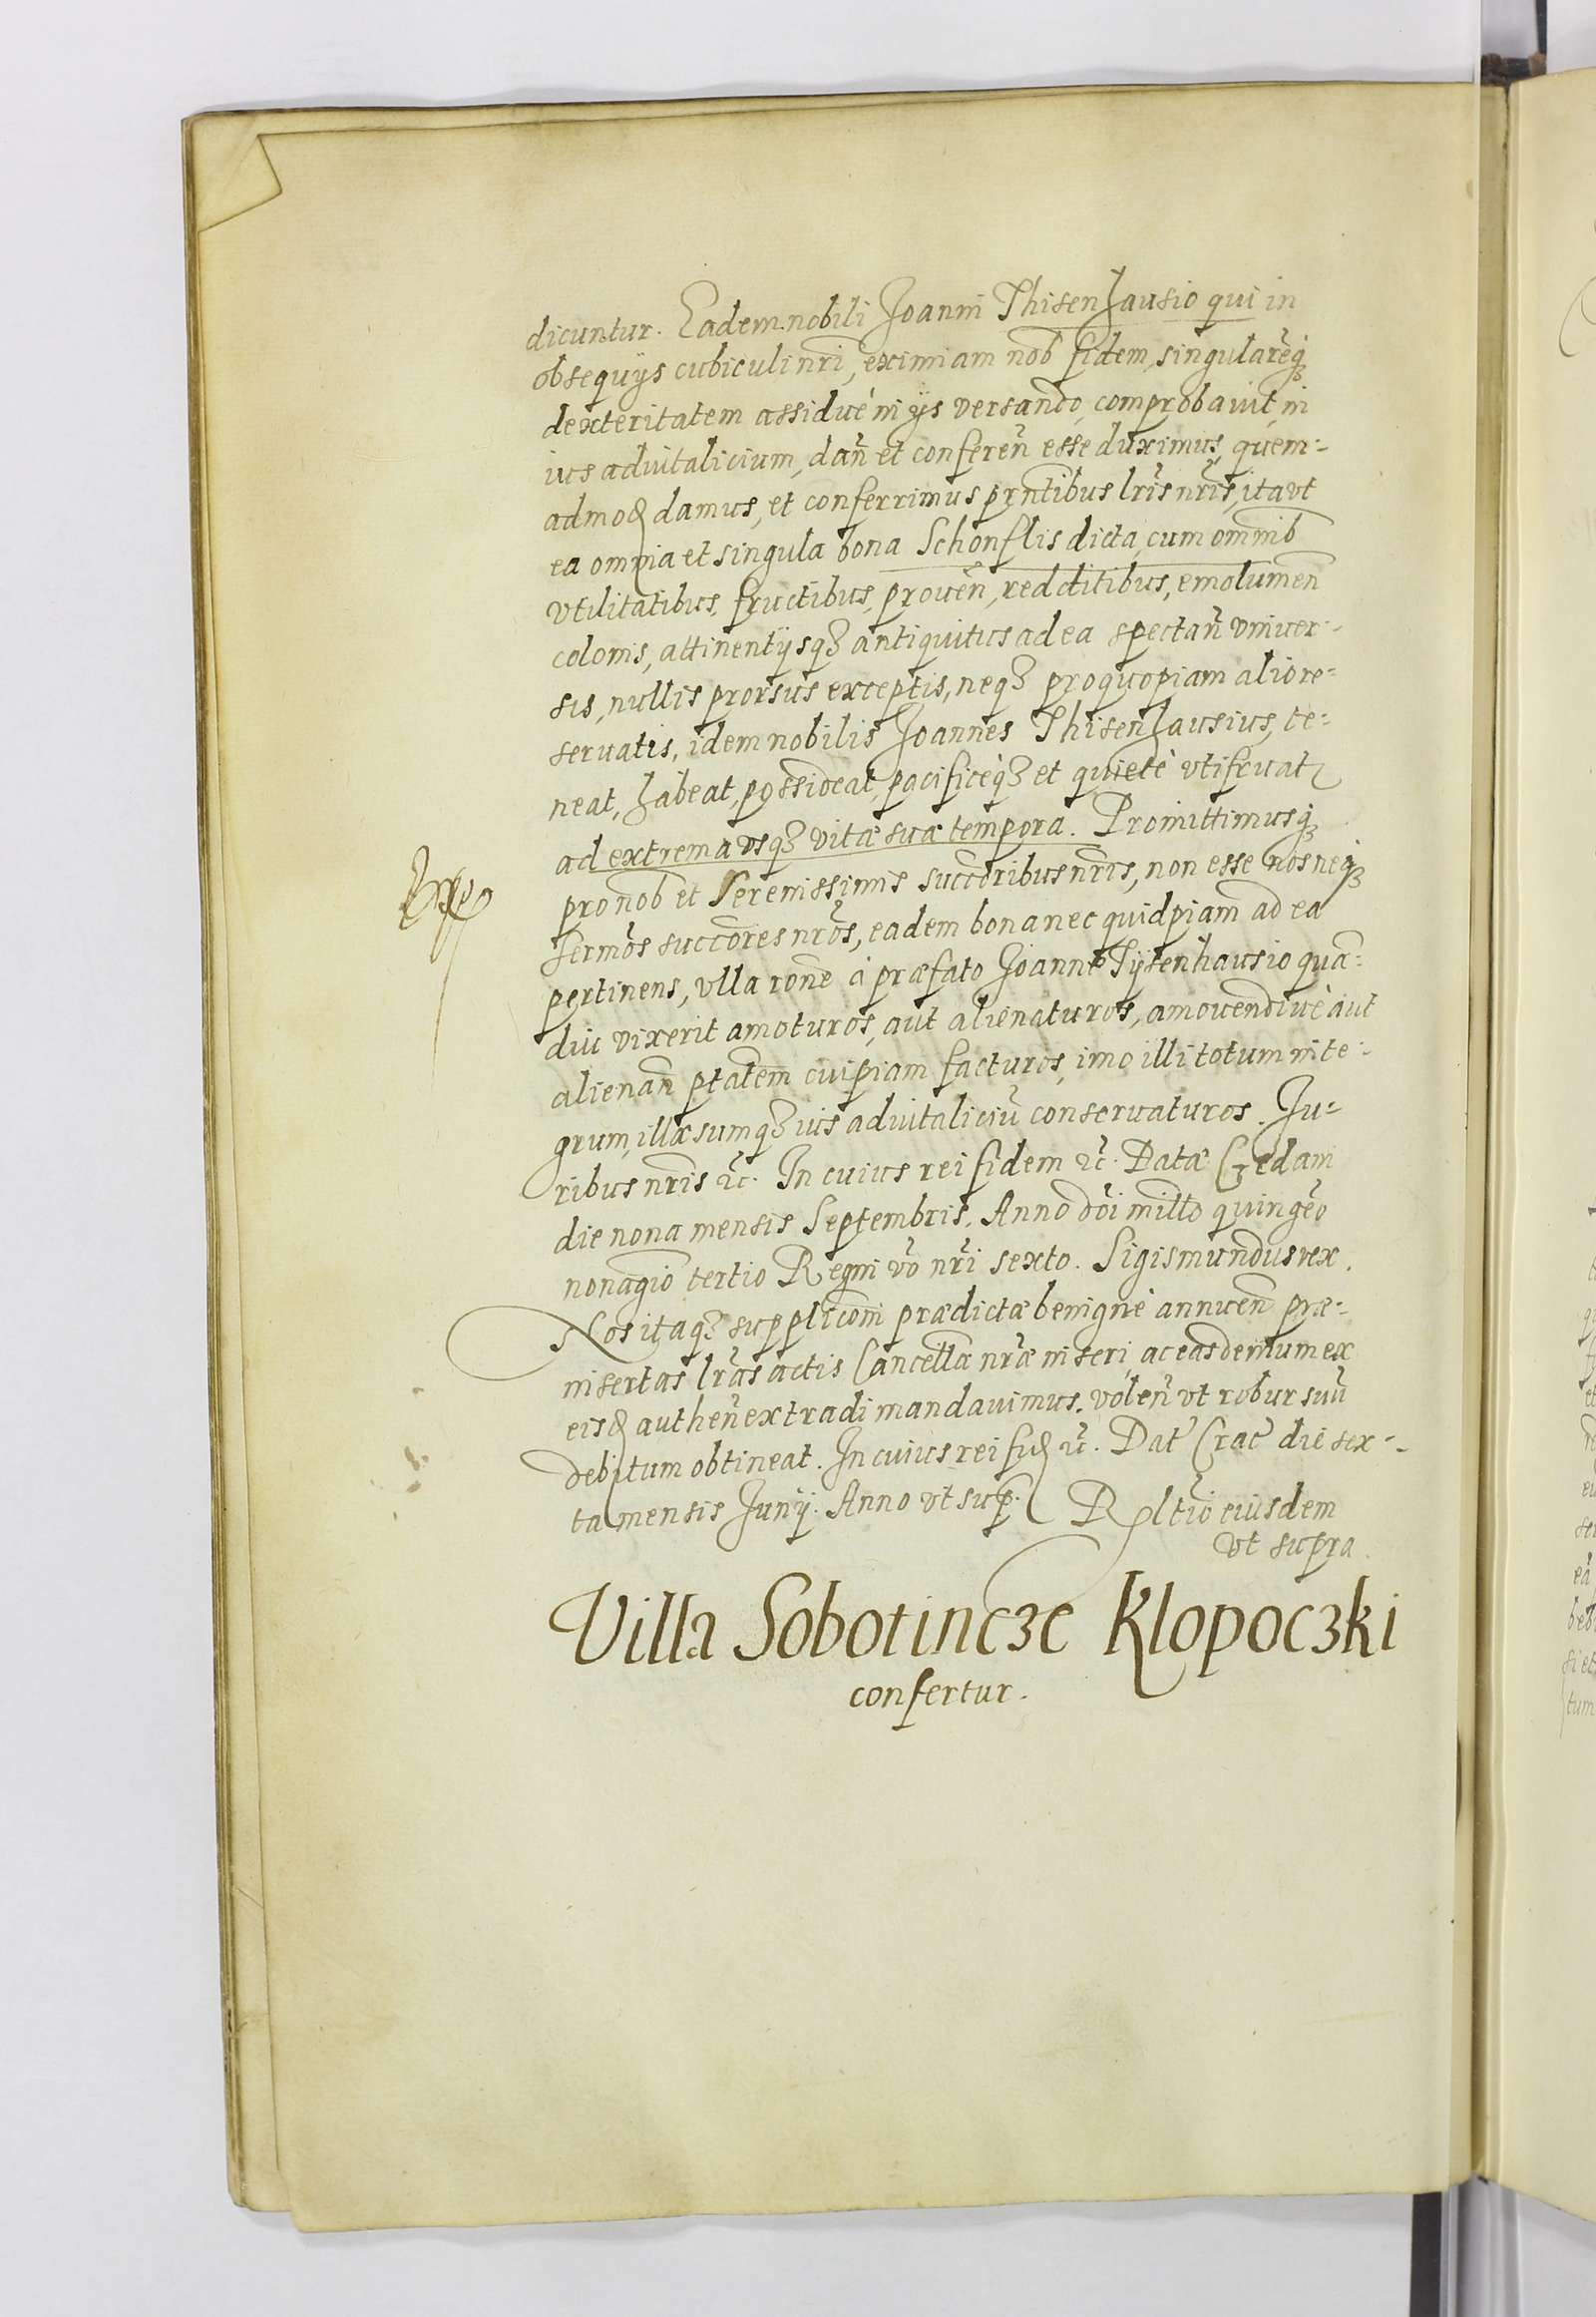 dicuntur. Eadem nobili Joanni Thisenhausio qui in
obsequijs cubiculi nr̃i, eximiam nob fidem, singularẽq3
dexteritatem assiduè in ijs versando, comprobavit, in
ius aduitalicium, dañ et confereñ esse duximus, quem-
admod damus, et conferrimus pr̃ntibus lr̃is nr̃is, ita vt
ea omnia et singula bona Schonflis dicta, cum omnib
vtilitatibus, fructibus, proueñ, redditibus, emolumeñ
colonis, attinentijsq3 antiquitus ad ea spectañ vniuer-
sis, nullis prorsus exceptis, neq3 pro quopiam aliore-
seruatis, idem nobilis Joannes Thisenhausius, te-
neat, habeat, possideat, pacificèq3 et quietè vtifruat
ad extrema vsq3 vitæ suæ tempora. Promittimusq3
pro nob et Serenissimis succõribus nr̃is, non esse nos neq3
sermos succõres nr̃os, eadem bona nec quidpiam ad ea
pertinens, vlla rõne à præfato Joanne Tijsenhausio quã-
diu vixerit amoturos, aut alienaturos, amouendiuè aut
alienañ ptãtem cuipiam facturos, imo illi totum inte-
grum, illæsumq3 ius aduitaliciũ conseruaturos. Ju-
ribus nr̃is &c. In cuius rei fidem &c. Datæ Gedani
die nona mensis Septembris. Anno dñi millo quingẽo
nonagio tertio Regni võ nr̃i sexto. Sigismundus rex.
Nos itaq3 supplicõni prædictæ benignè annuen præ-
insertas lr̃as actis Cancellæ nr̃æ inseri, ac easdem um ex
eisd autheñ extradi mandauimus. voleñ vt robur suũ
debitum obtineat. In cuius rei fid &c. Dat Crac die sex-
ta mensis Junij. Anno vt sup. Rltio eiusdem
vt supra
Villa Sobotincze Klopoczki
confertur.